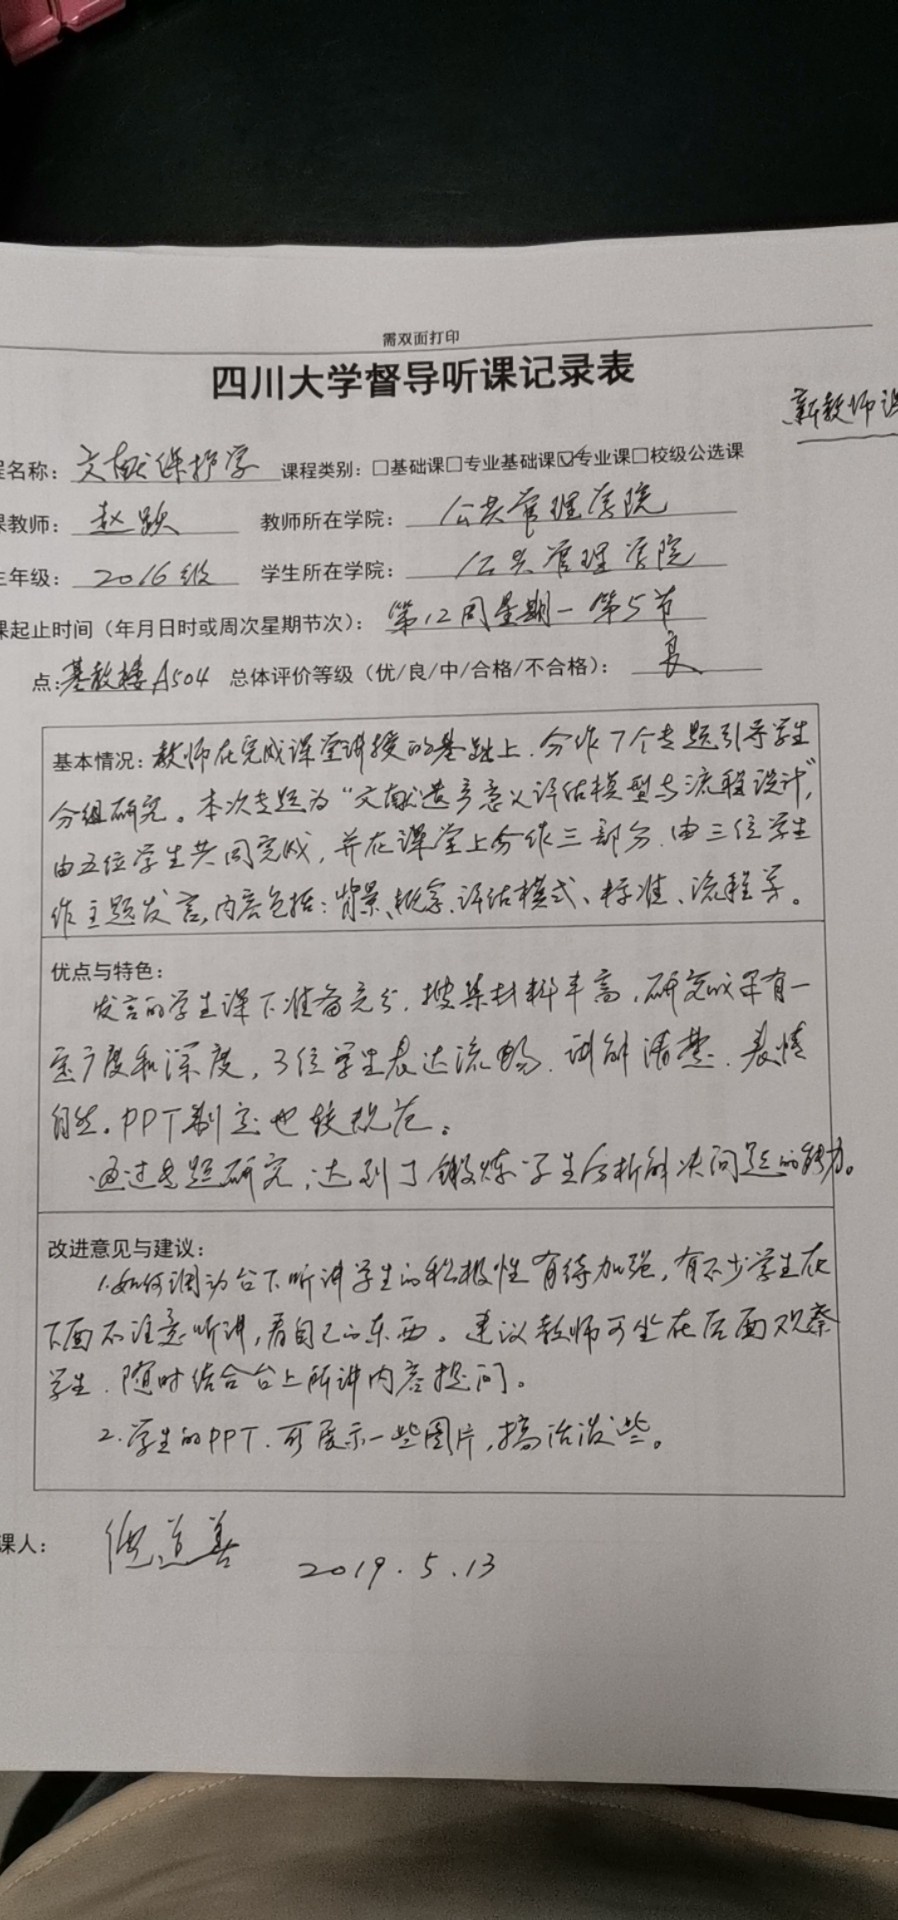 需双面打印
四川大学督导听课记录表
新教师
程名称：文献保护学 课程类别：□基础课□专业基础课☑专业课□校级公选课
课教师：赵跃 教师所在学院：公共管理学院
生年级：2016级 学生所在学院：公共管理学院
课起止时间（年月日时或周次星期节次）：第12周星期一 第5节
点：基教楼A504 总体评价等级（优/良/中/合格/不合格）：良
基本情况：教师在完成课堂讲授的基础上，分作7个专题引导学生
分组研究。本次专题为“文献遗产意义评估模型与流程设计”，
由五位学生共同完成，并在课堂上分作三部分，由三位学生
作主题发言，内容包括：背景、概念、评估模式、标准、流程等。
优点与特色：
发言的学生课下准备充分，搜集材料丰富，研究成果有一
定广度和深度，3位学生表达流畅，讲解清楚，表情
自然。PPT制定也较规范。
通过专题研究，达到了锻炼学生分析解决问题的能力。
改进意见与建议：
1.如何调动台下听讲学生的积极性有待加强，有不少学生在
下面不注意听讲，看自己的东西。建议教师可坐在后面观察
学生，随时结合台上所讲内容提问。
2.学生的PPT，可展示一些图片，搞活泼些。
课人：
2019.5.13